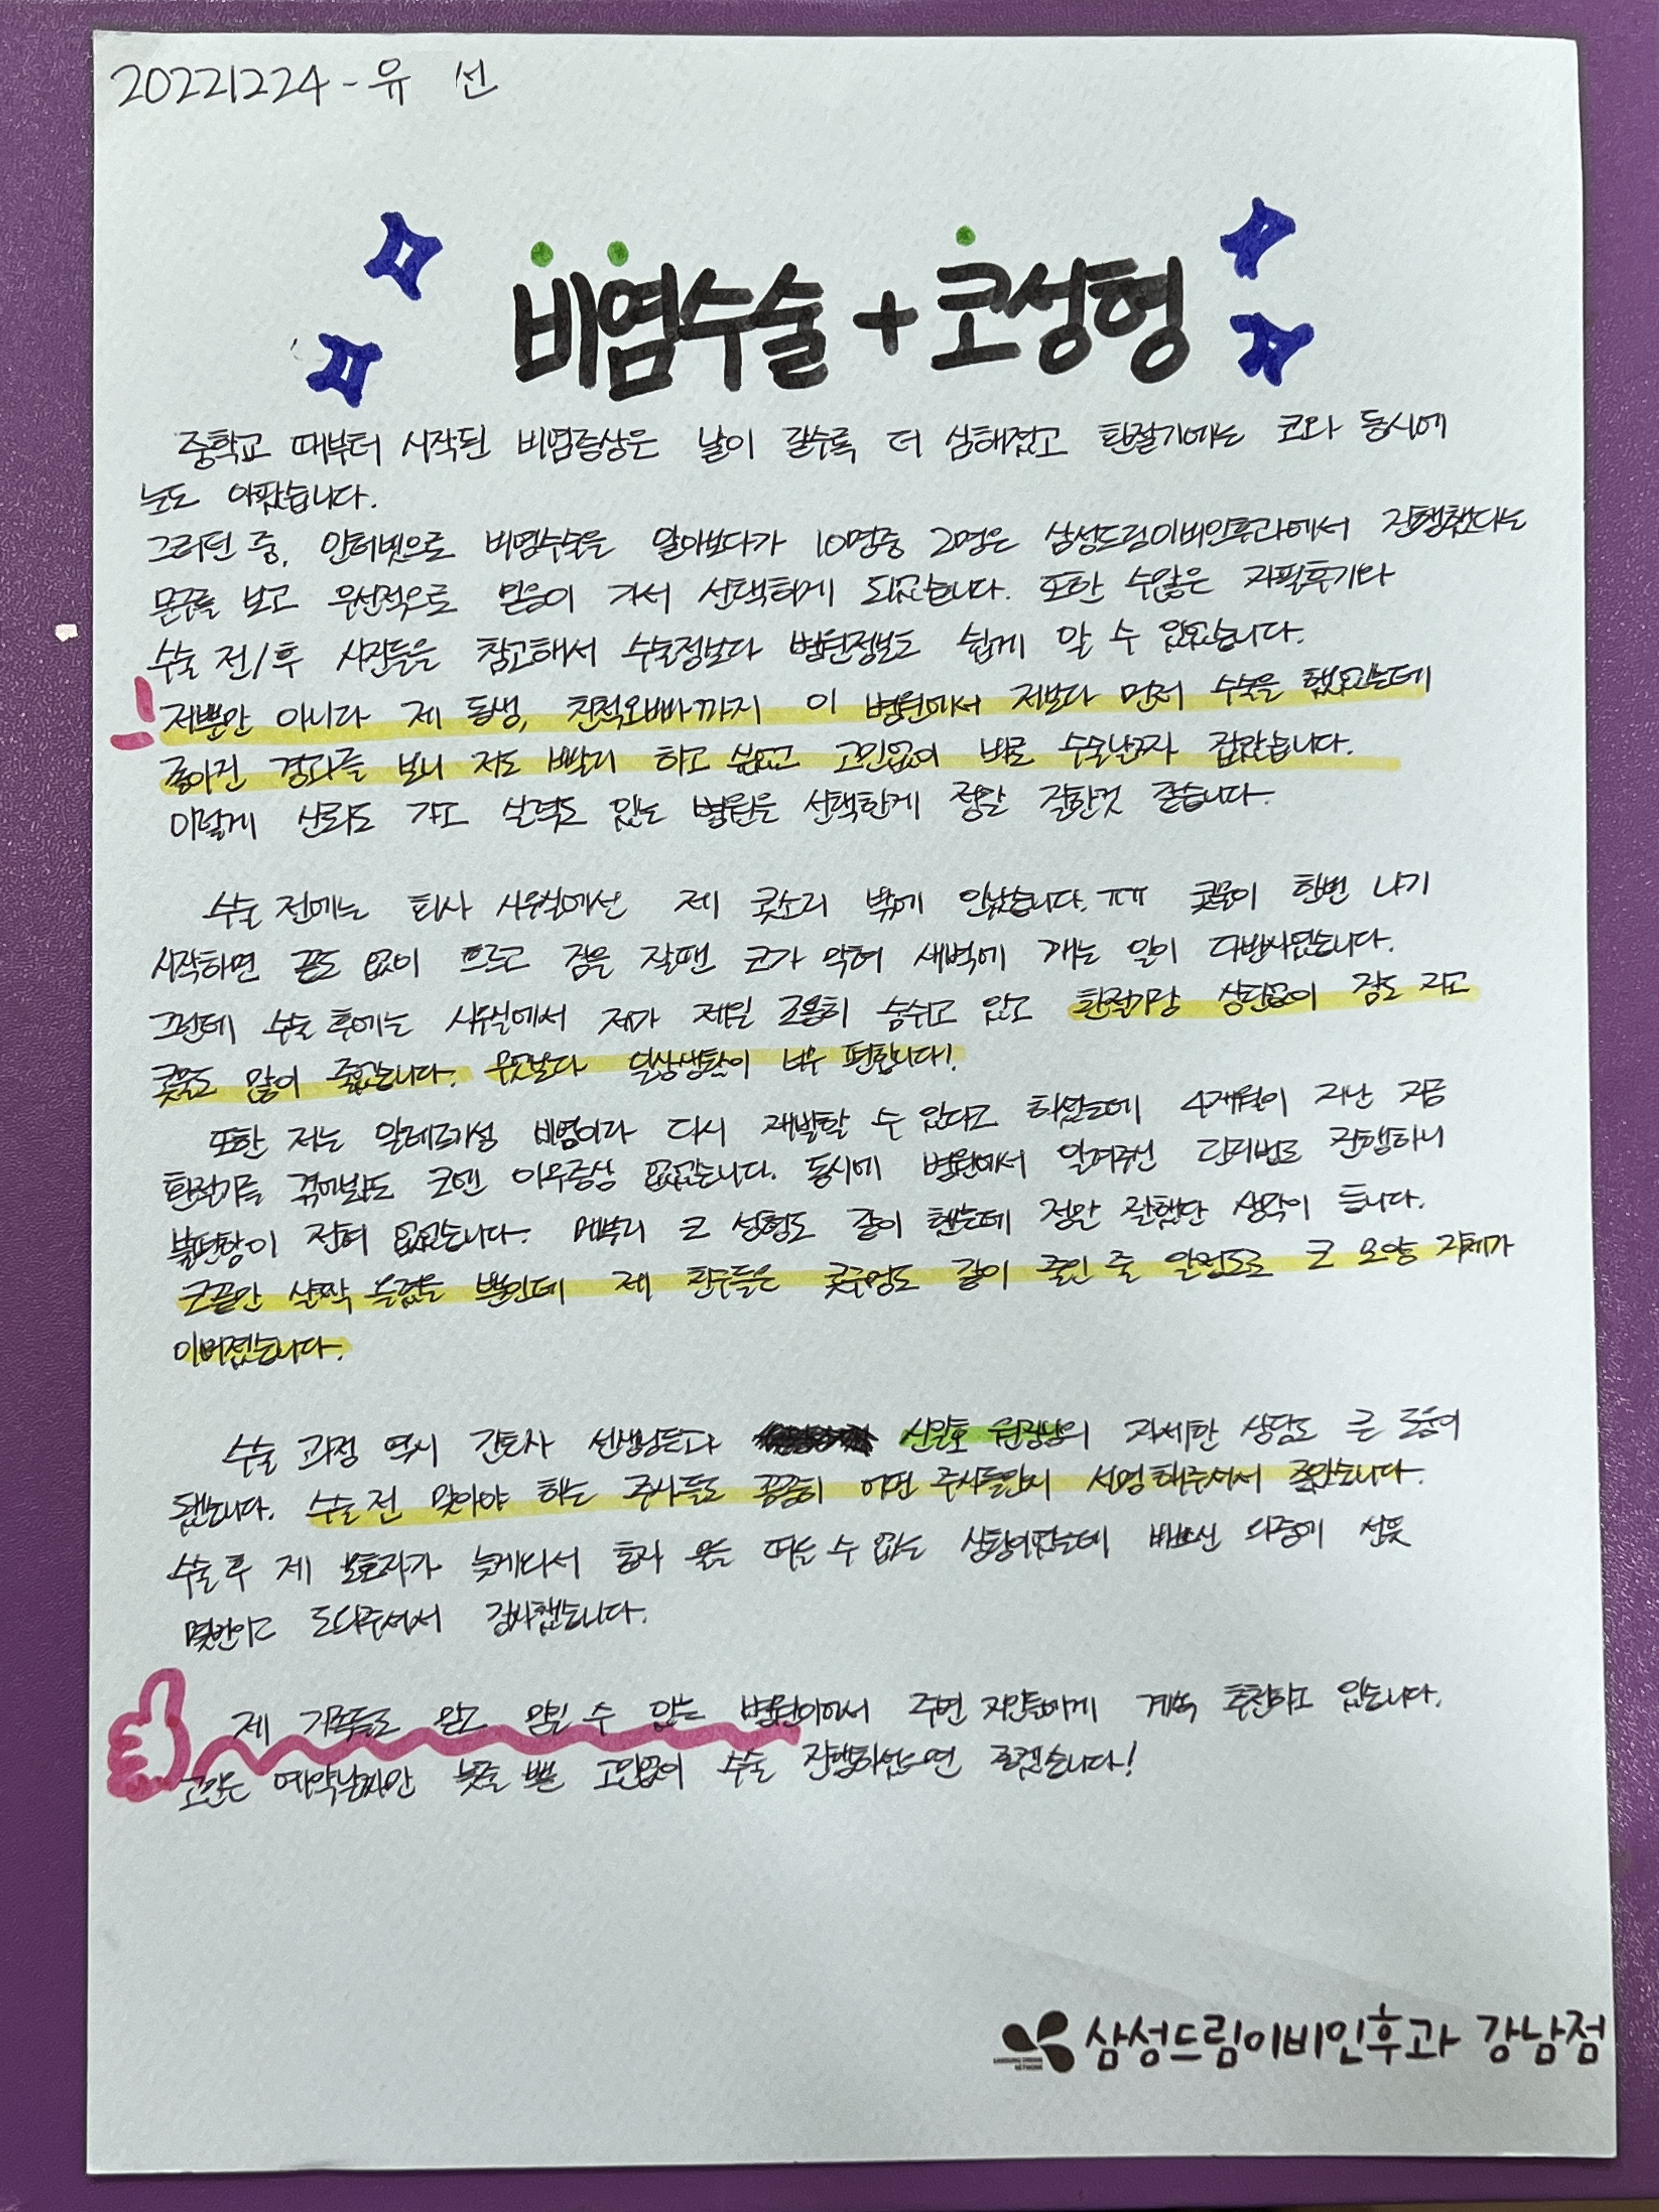 20221224-유 선
비염수술+코성형
중학교 때부터 시작된 비염증상은 날이 갈수록 더 심해졌고 환절기에는 코와 동시에
눈도 아팠습니다.
그러던 중, 인터넷으로 비염수술을 알아보다가 10명중 2명은 삼성드림이비인후과에서 진행했다는
문구를 보고 우선적으로 믿음이 가서 선택하게 되었습니다. 또한 수많은 자필후기와
수술 전/후 사진들을 참고해서 수술정보다 병원정보도 쉽게 알 수 있었습니다.
저뿐만 아니라 제 동생, 친척오빠까지 이 병원에서 저보다 먼저 수술을 했었는데
좋아진 경과를 보니 저도 빨리 하고 싶었고 고민없이 바로 수술날짜 잡았습니다.
이렇게 신뢰도 가고 실력도 있는 병원을 선택한게 정말 잘한것 같습니다.
수술 전에는 회사 사무실에선 제 콧소리 밖에 안났습니다.ㅠㅠ 콧물이 한번 나기
시작하면 끝도 없이 흐르고 잠을 잘땐 코가 막혀 새벽에 깨는 일이 다반사였습니다.
그런데 수술 후에는 사무실에서 제가 제일 조용히 숨쉬고 있고 환절기랑 상관없이 잠도 자고
콧물도 많이 줄었습니다. 무엇보다 일상생활이 너무 편합니다!
또한 저는 알레르기성 비염이라 다시 재발할 수 있다고 하셨는데 4개월이 지난 지금
환절기를 겪어봐도 코엔 아무증상 없었습니다. 동시에 병원에서 알려주신 관리법도 진행하니
불편함이 전혀 없었습니다. 매부리 코 성형도 같이 했는데 정말 잘했단 생각이 듭니다.
코끝만 살짝 묶었을 뿐인데 제 친구들은 콧구멍도 같이 줄인 줄 알정도로 코 모양 자체가
이뻐졌습니다.
수술 과정 역시 간호사 선생님들과 신일호 원장님의 자세한 상담도 큰 도움이
됐습니다. 수술 전 맞아야 하는 주사들도 꼼꼼히 어떤 주사들인지 설명해주셔서 좋았습니다.
수술 후 제 보호자가 늦게와서 혼자 물을 떠올 수 없는 상황이었는데 바쁘신 와중에 선뜻
몇번이고 도와주셔서 감사했습니다.
제 가족들도 믿고 맡길 수 있는 병원이어서 주변 지인들에게 계속 추천하고 있습니다.
고민은 예약날짜만 늦출 뿐 고민없이 수술 진행하셨으면 좋겠습니다!
삼성드림이비인후과 강남점